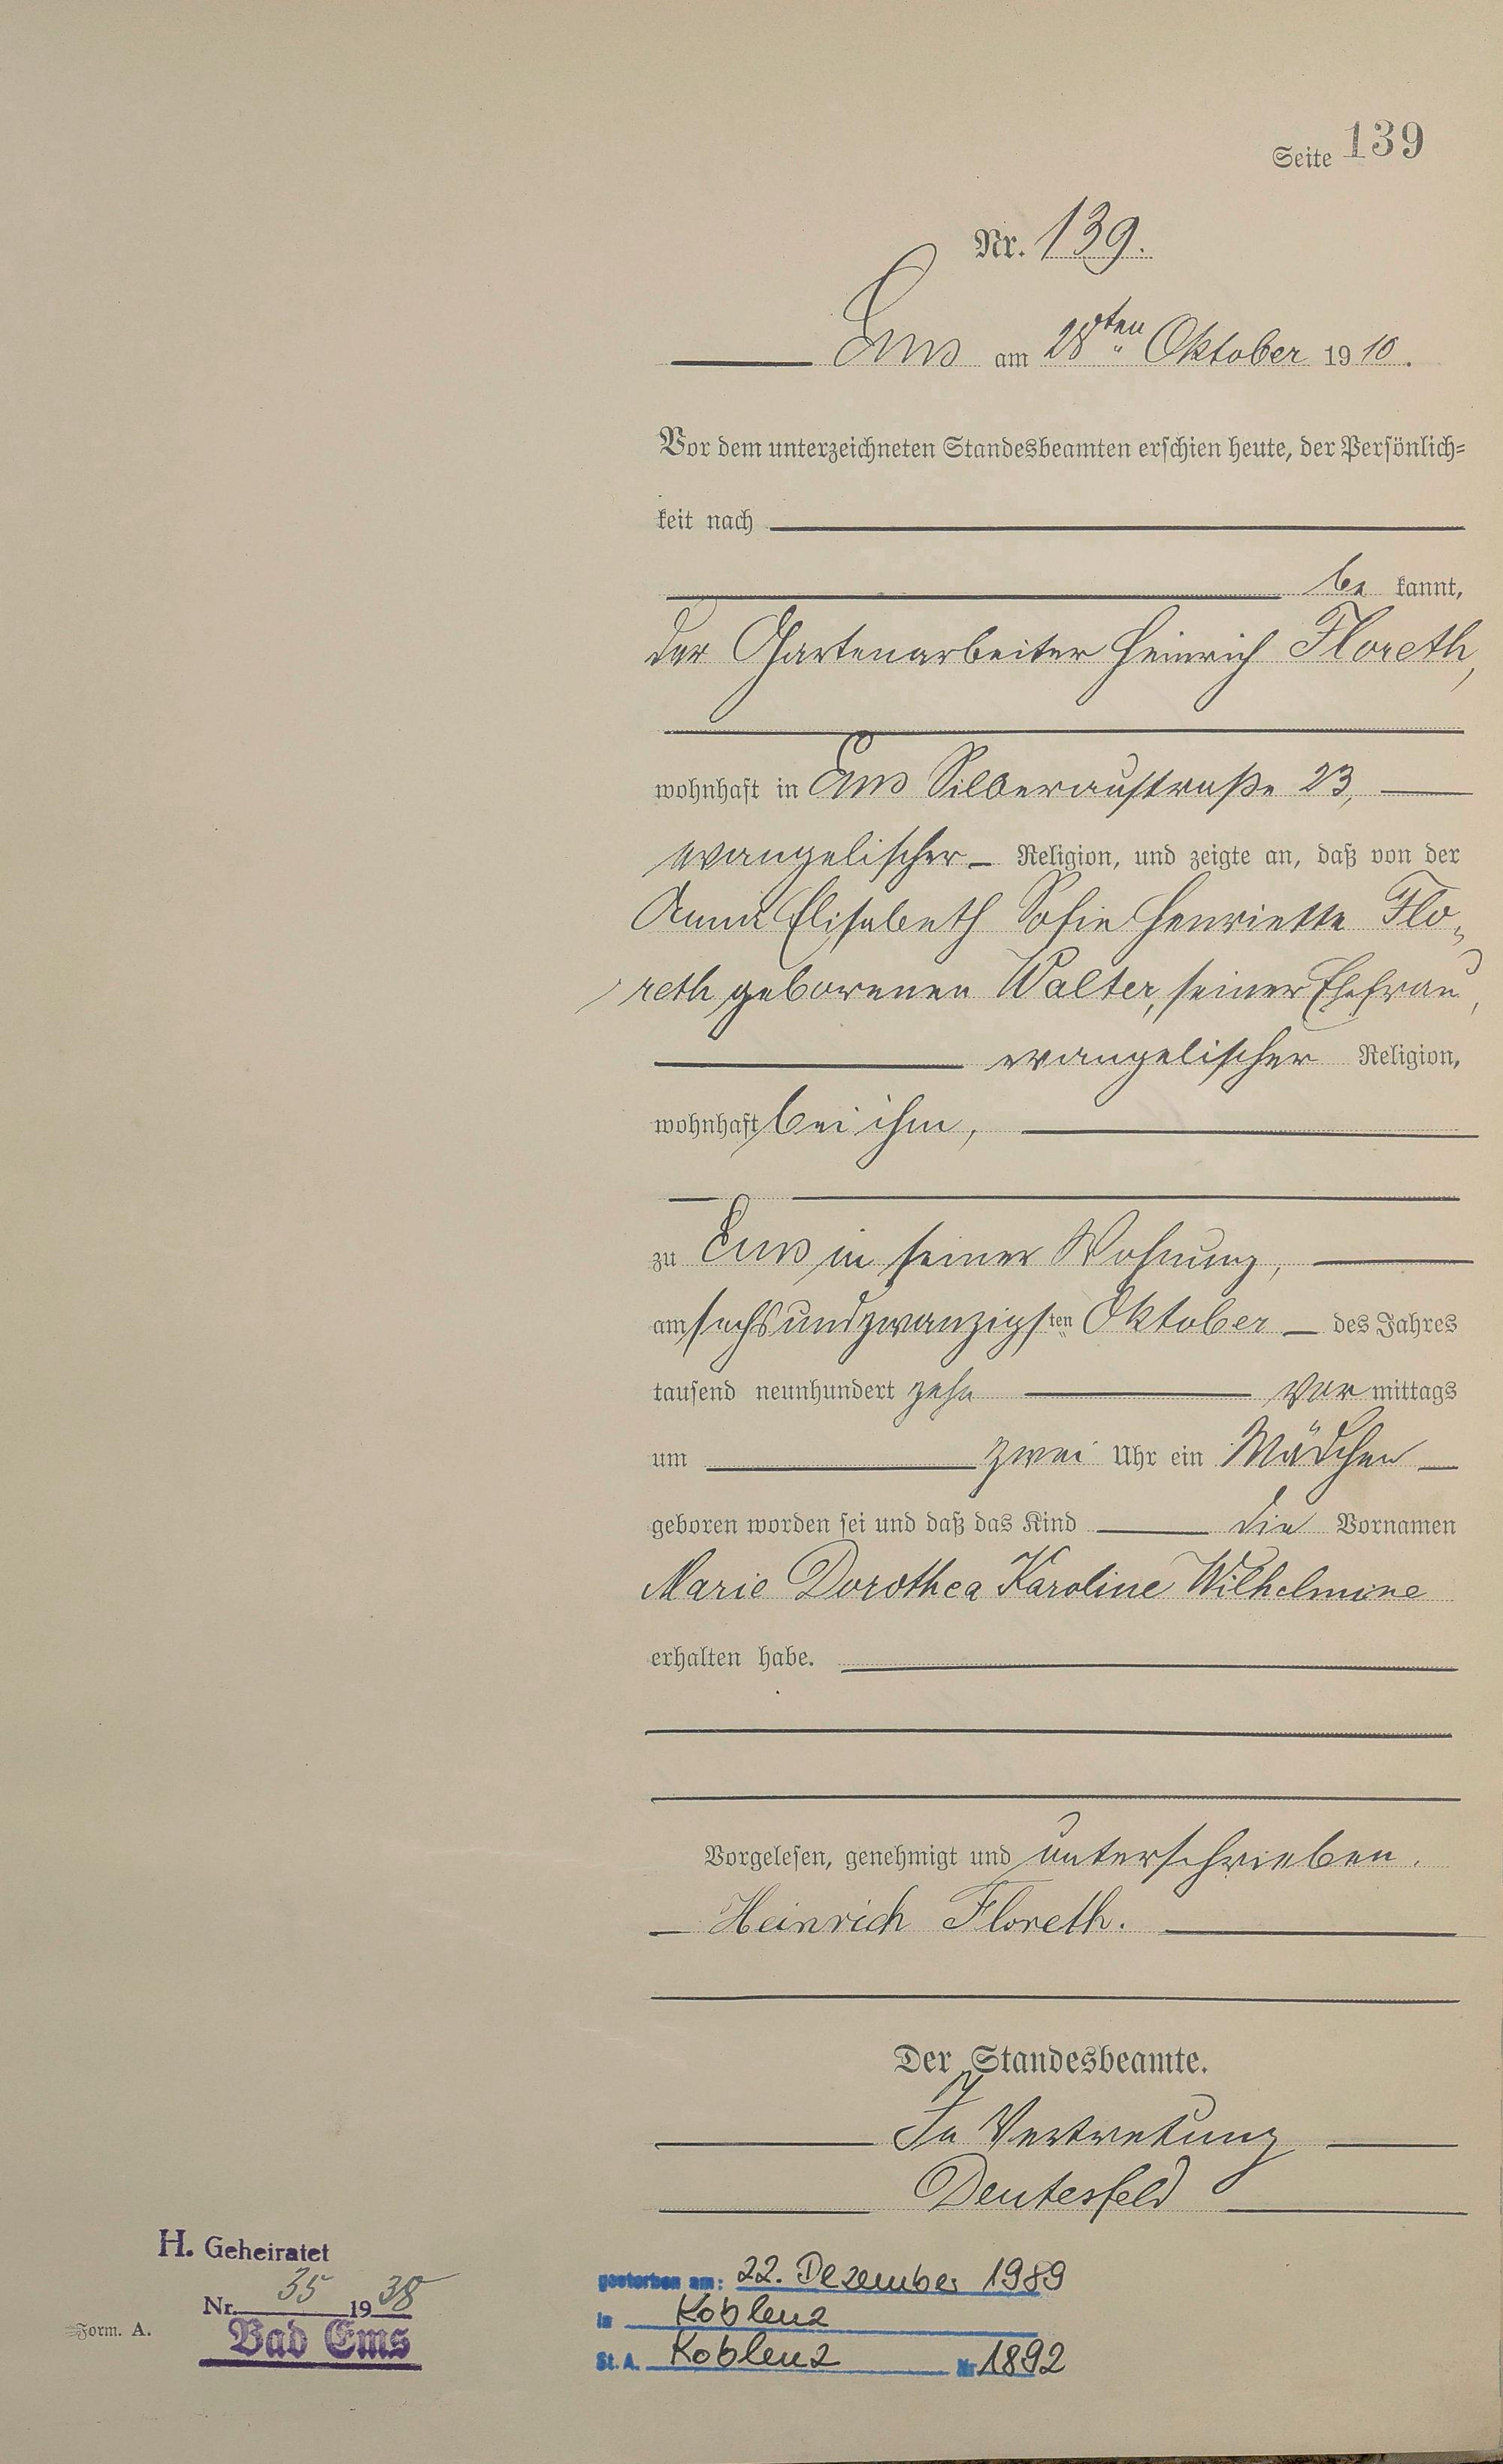 Seite 139
Nr. 139.
Ems am 28ten Oktober 1910.
Vor dem unterzeichneten Standesbeamten erschien heute, der Persönlich=
keit nach
be kannt,
der Gartenarbeiter Heinrich Floreth,
wohnhaft in Ems Silberaustraße 23,
evangelischer Religion, und zeigte an, daß von der
Anna Elisabeth Sofie Henriette Flo-
reth geborenen Walter, seiner Ehefrau,
evangelischer Religion,
wohnhaft bei ihm,
zu Ems in seiner Wohnung,
am sechsundzwanzigsten Oktober des Jahres
tausend neunhundert zehn Vor mittags
um zwei Uhr ein Mädchen
geboren worden sei und daß das Kind die Vornamen
Marie Dorothea Karoline Wilhelmine
erhalten habe.
Vorgelesen, genehmigt und unterschrieben.
Heinrich Floreth.
Der Standesbeamte.
In Vertretung
Deutesfeld
H. Geheiratet
Nr. 35 1938
Bad Ems
Form. A.
gestorben am: 22. Dezember 1989
in Koblenz
St. A. Koblenz Nr 1892